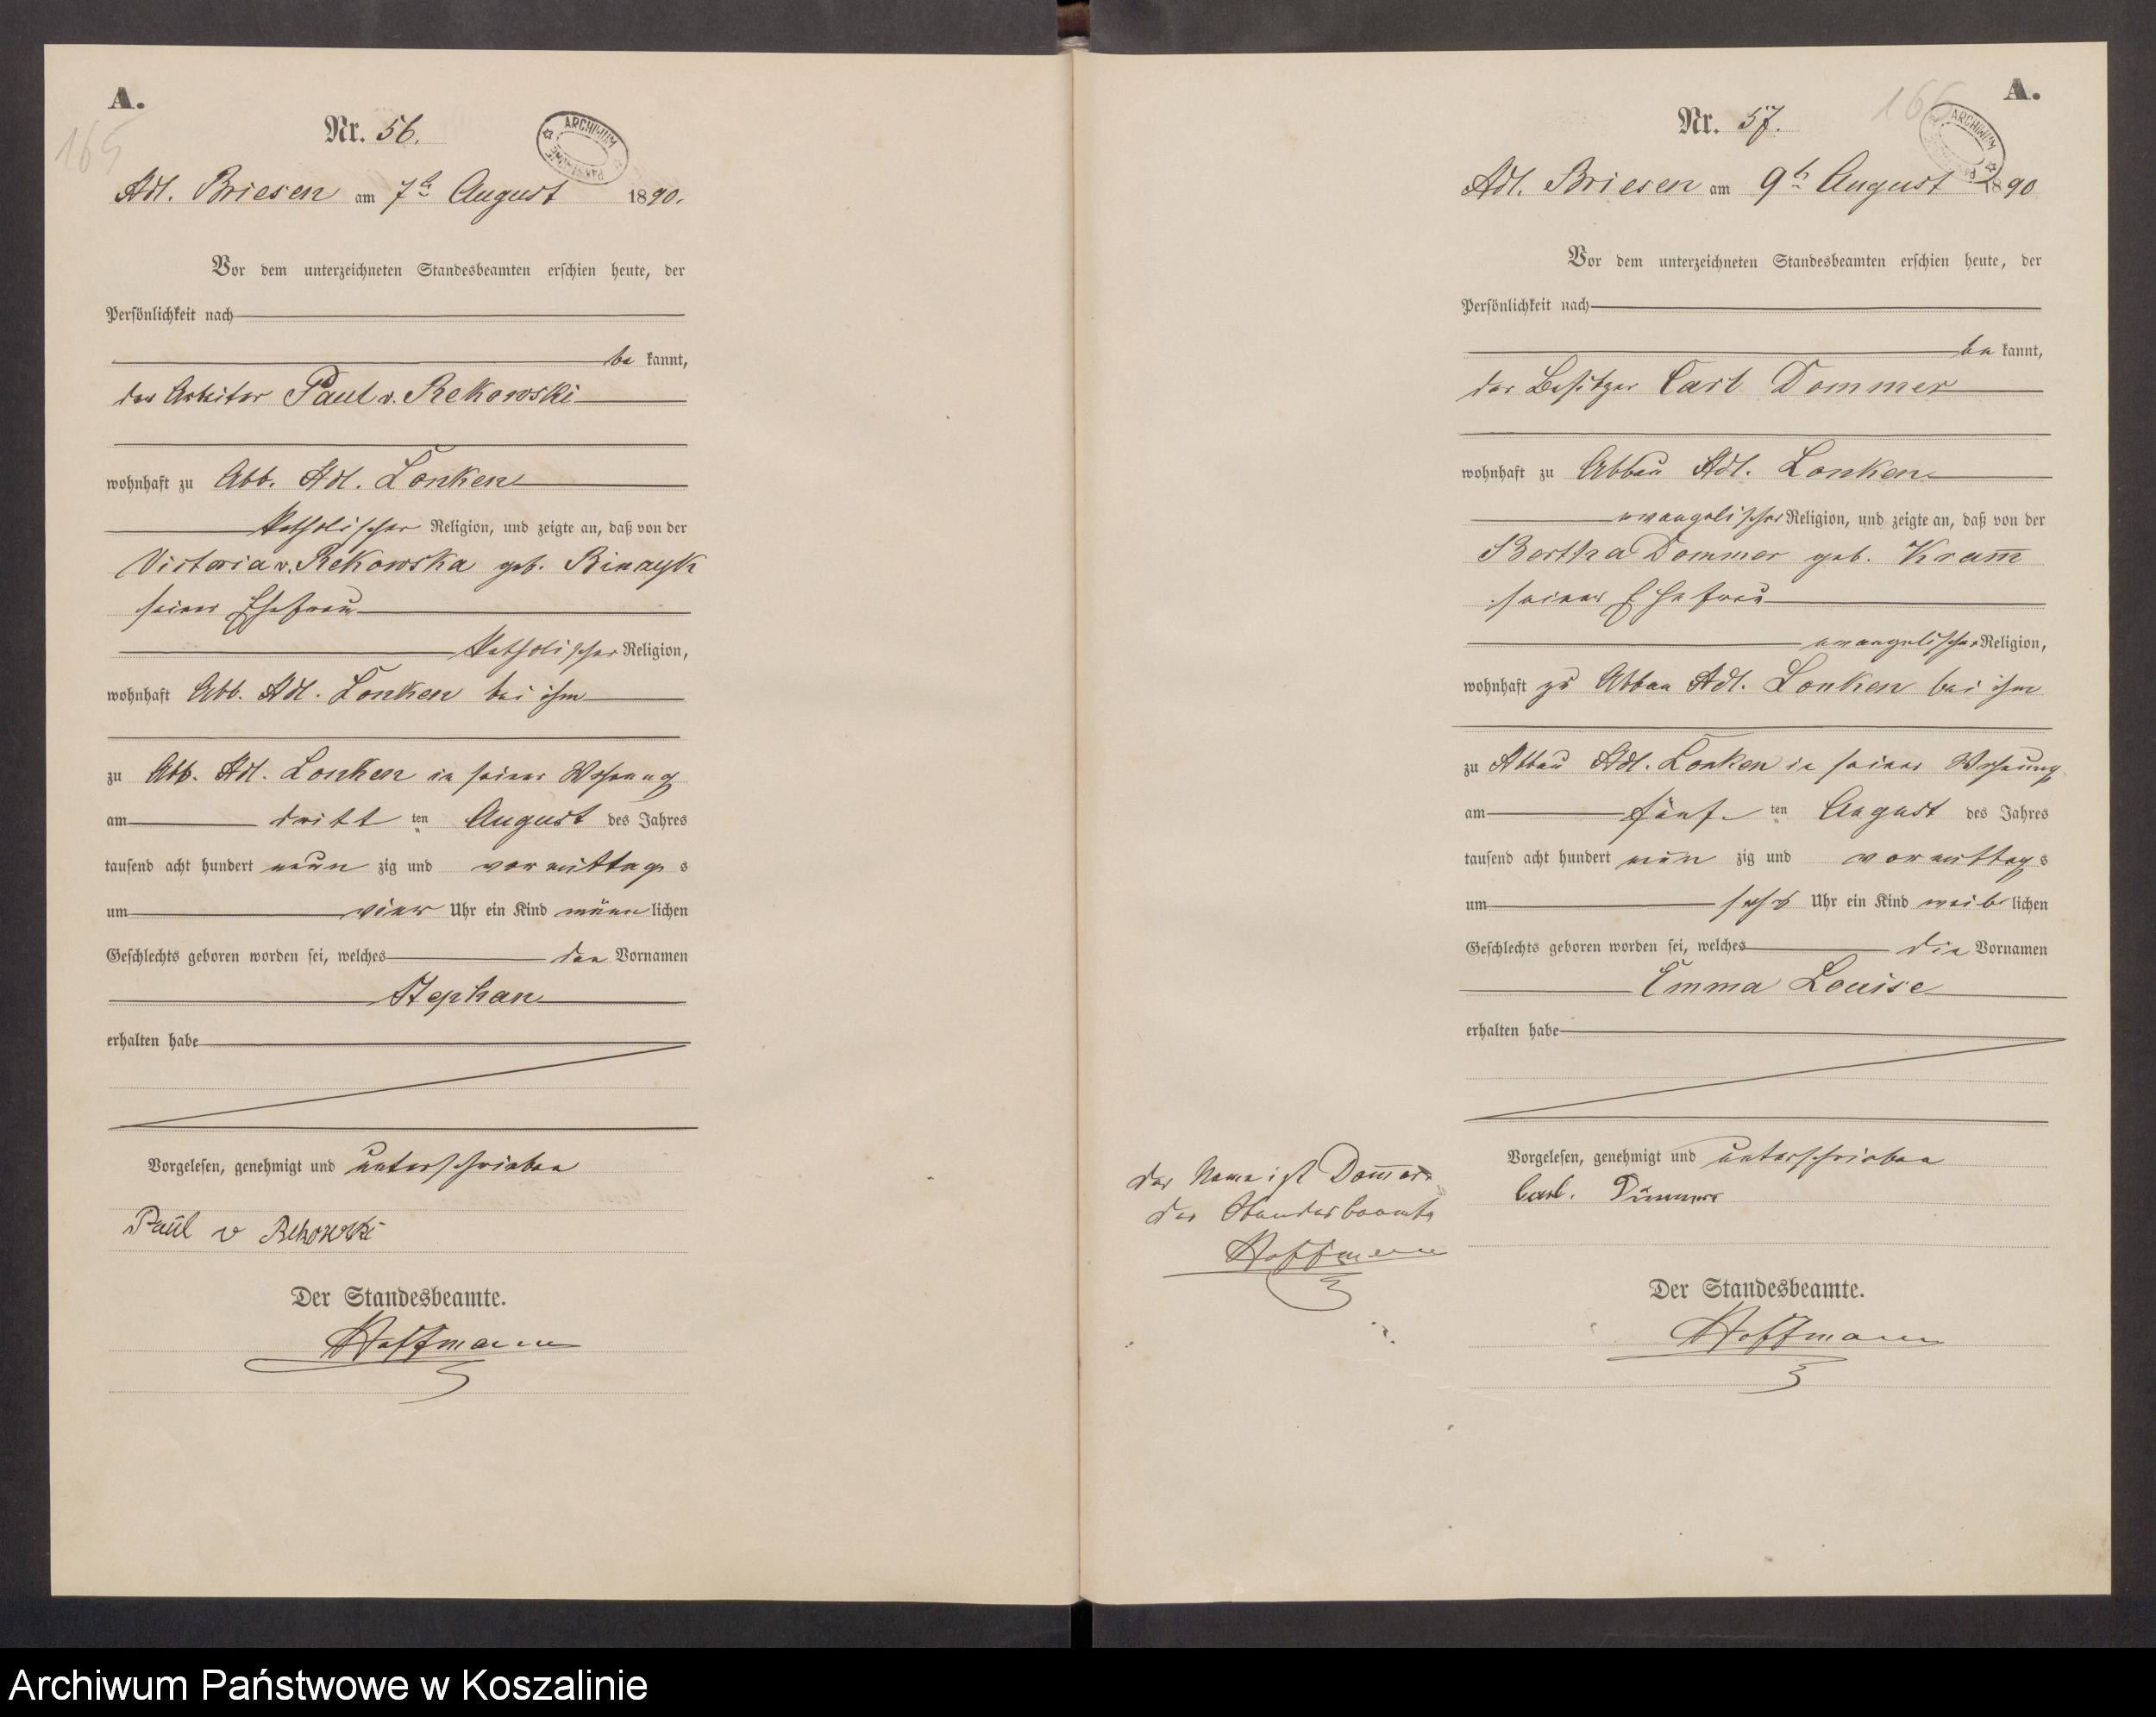 A.
165
Nr. 56.
ARCHIWUM
Adl. Briesen am 7t August 1890.
Vor dem unterzeichneten Standesbeamten erschien heute, der
Persönlichkeit nach
be kannt,
der Arbeiter Paul v. Rekowski
wohnhaft zu Abb. Adl. Lonken
katholischer Religion, und zeigte an, daß von der
Victoria v. Rekowska geb. Binzyk
seiner Ehefrau
katholischer Religion,
wohnhaft Abb. Adl. Lonken bei ihm
zu Abb. Adl. Lonken in seiner Wohnung
am dritt ten August des Jahres
tausend acht hundert neun zig und vormittag s
um vier Uhr ein Kind männ lichen
Geschlechts geboren worden sei, welches den Vornamen
Stephan
erhalten habe
Vorgelesen, genehmigt und unterschrieben
Paul v Rekowski
Der Standesbeamte.
Hoffmann
A.
166
Nr. 57.
ARCHIWUM
Adl. Briesen am 9t August 1890
Vor dem unterzeichneten Standesbeamten erschien heute, der
Persönlichkeit nach
be kannt,
der Besitzer Carl Dommer
wohnhaft zu Abbau Adl. Lonken
evangelischer Religion, und zeigte an, daß von der
Bertha Dommer geb. Kram̅
seiner Ehefrau
evangelischer Religion,
wohnhaft zu Abbau Adl. Lonken bei ihm
zu Abbau Adl. Lonken in seiner Wohnung
am fünf ten August des Jahres
tausend acht hundert neun zig und vormittag s
um sechs Uhr ein Kind weib lichen
Geschlechts geboren worden sei, welches die Vornamen
Emma Louise
erhalten habe
Vorgelesen, genehmigt und unterschrieben
Carl.
Der Name ist
der Standesbeamte
Hoffmann
Der Standesbeamte.
Hoffmann
Archiwum Państwowe w Koszalinie